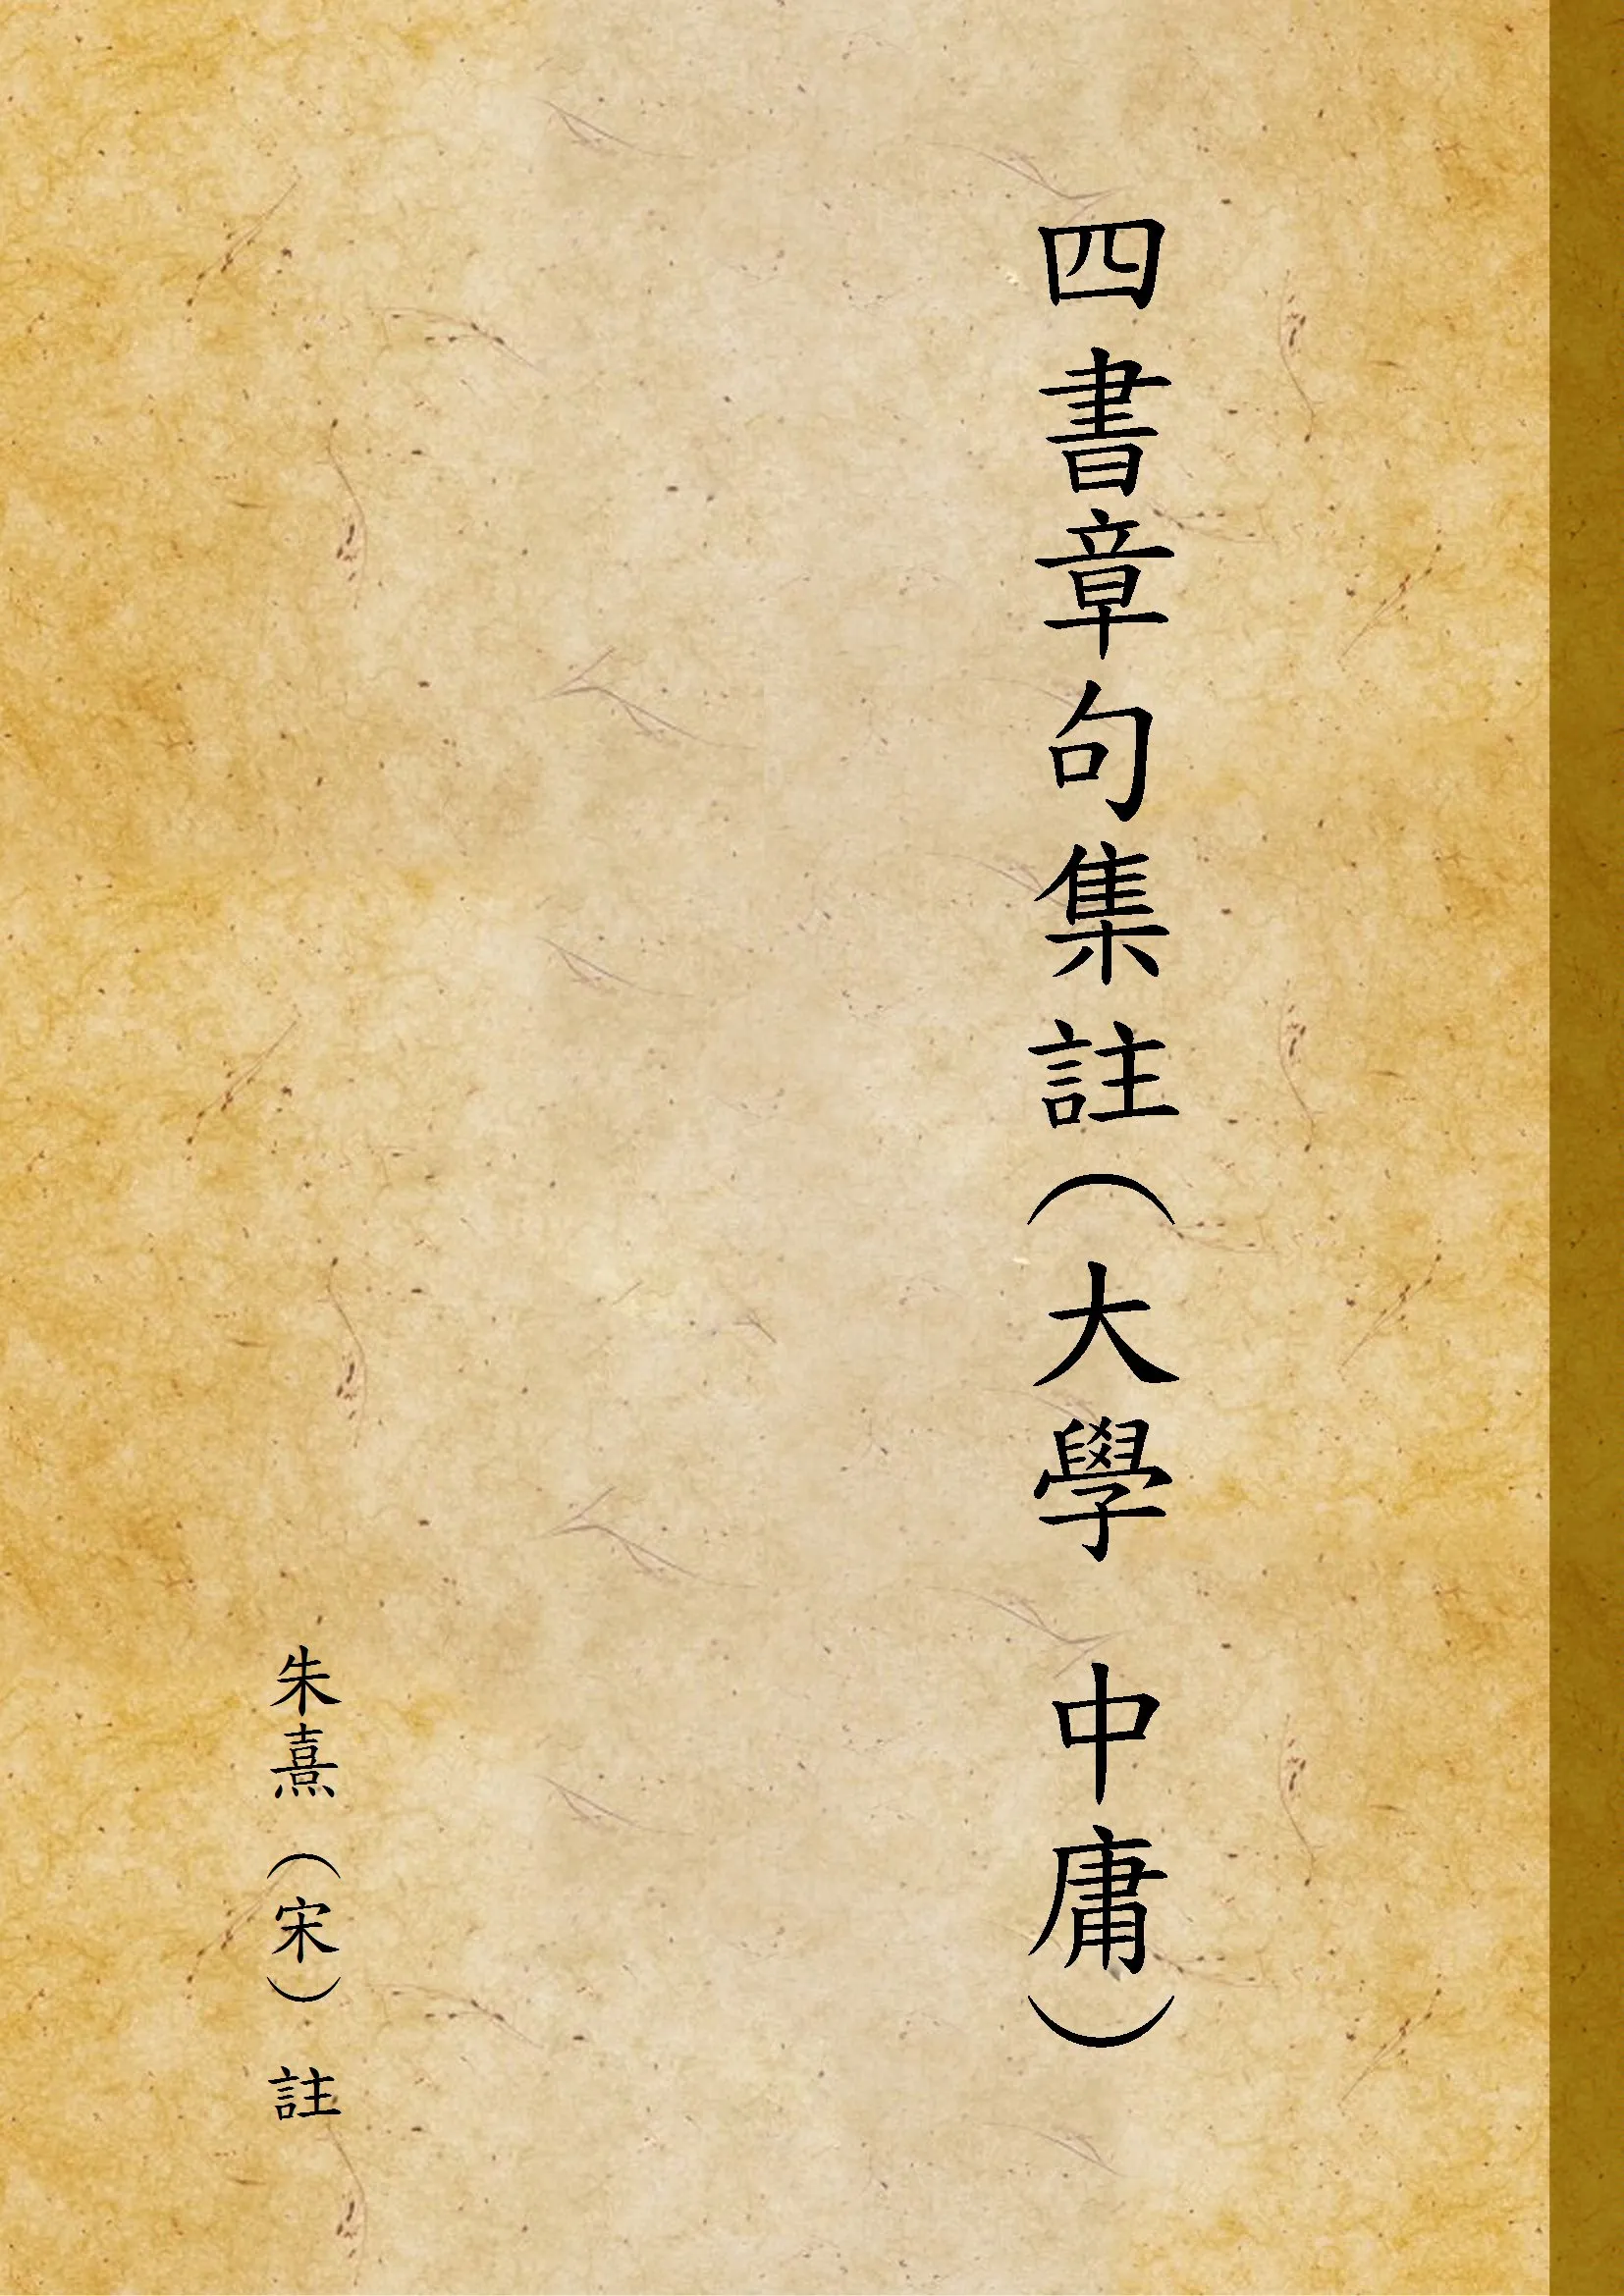 四書章句集註（大學 中庸）
朱熹（宋）註